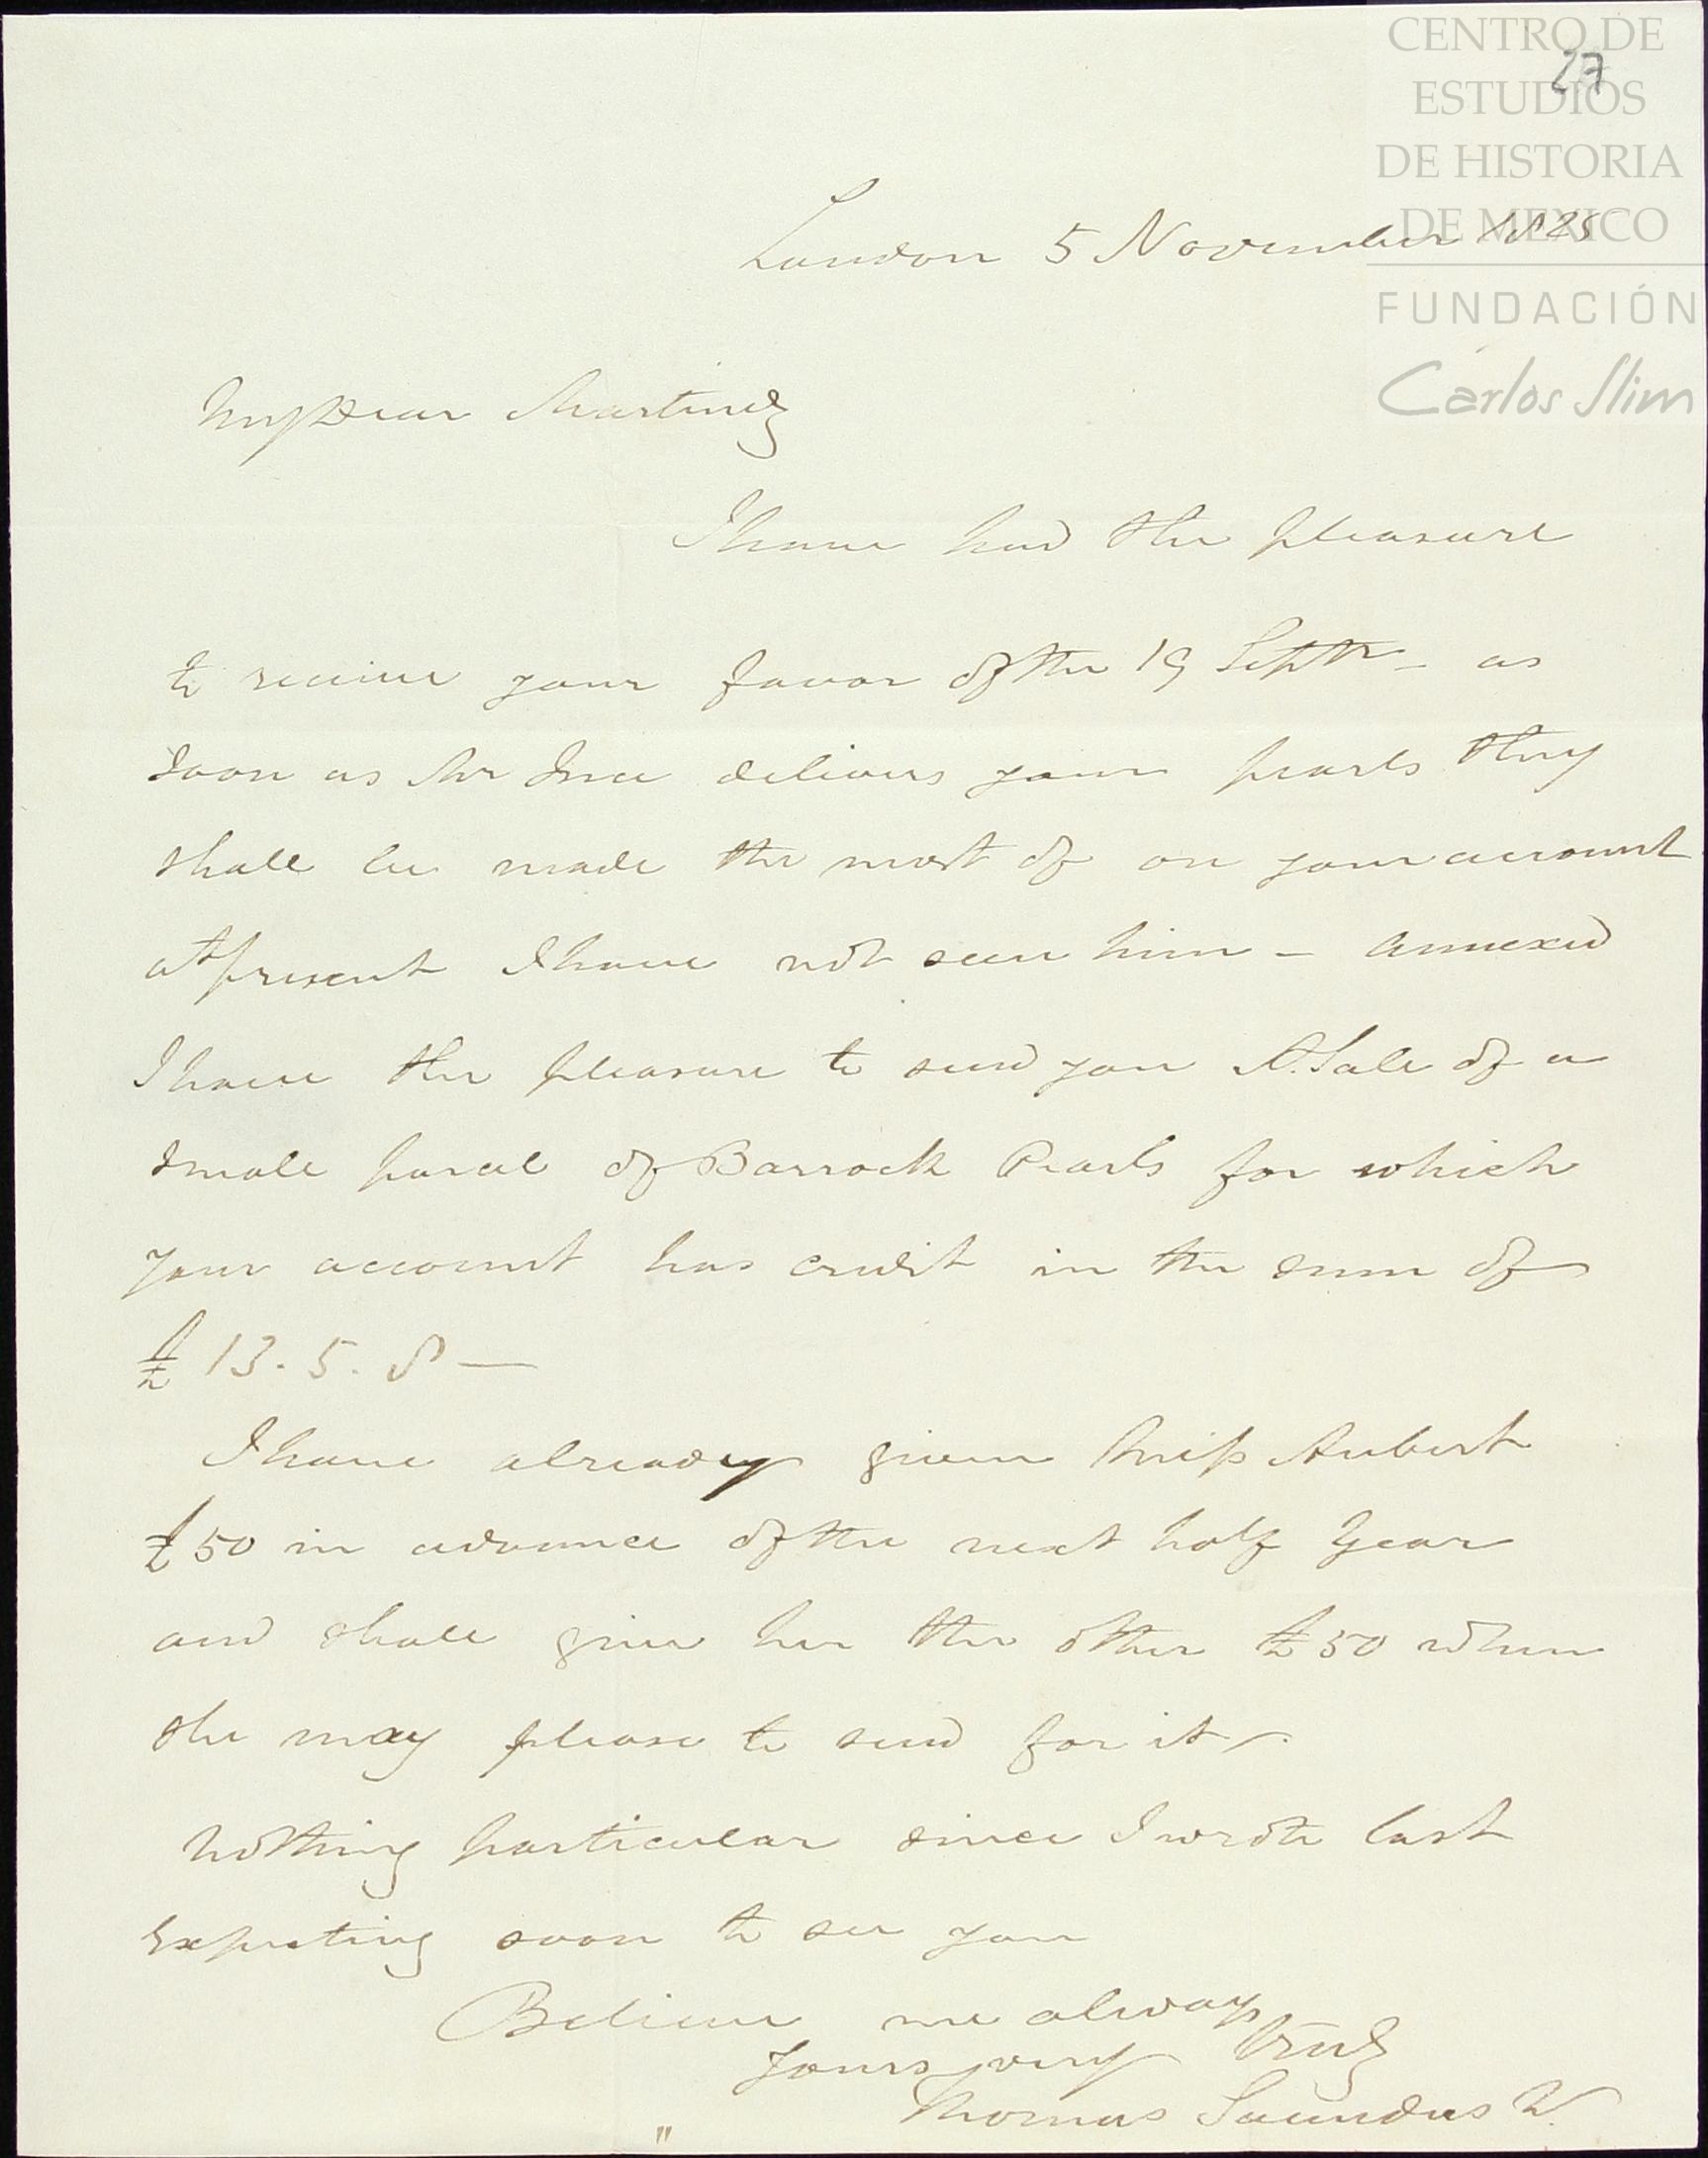 CENTRO DE
ESTUDIOS
DE HISTORIA
DE MEXICO
FUNDACIÓN
Carlos Slim
27
London 5 November 1825
My Dear Martinez
I have had the pleasure
to receive your favor of the 19 Septr - as
soon as Mr delivers your pearls they
shall be made the most of on your account
at present I have not seen him - annexed
I have the pleasure to send you A. Sale of a
small parcel of Barrock Pearls for which
your account has credit in the sum of
£ 13. 5. 8 —
I have already given Miss Aubert
£50 in advance of the next half year
and shall give her the other £50 when
she may please to send for it -
Nothing particular since I wrote last
Expecting soon to see you
Believe me always
Yours very truly
Thomas Saunders
"